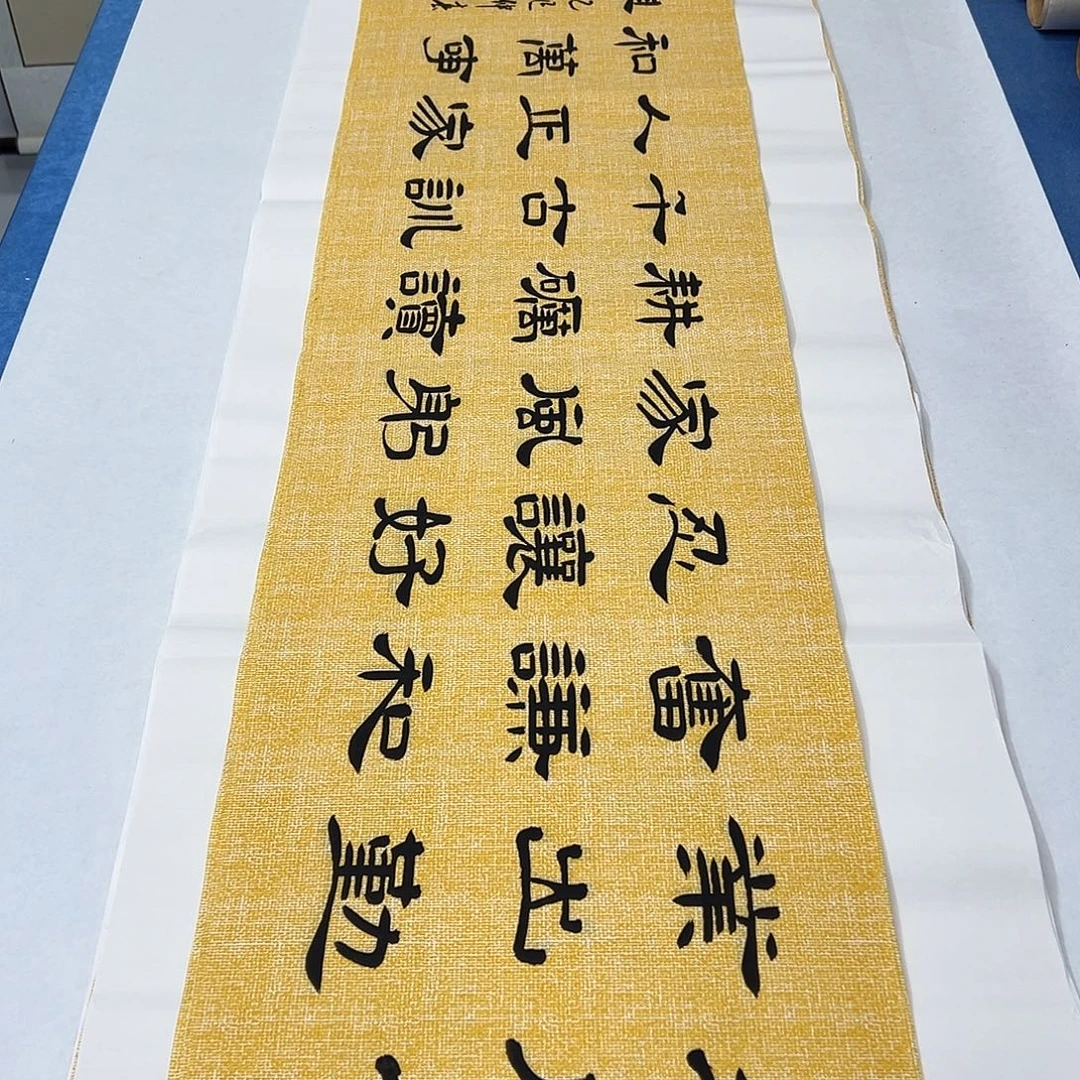 業出勤
奮謙和
忍讓好
家風躬
耕礪讀
千古訓
人正家
和萬事
乙巳